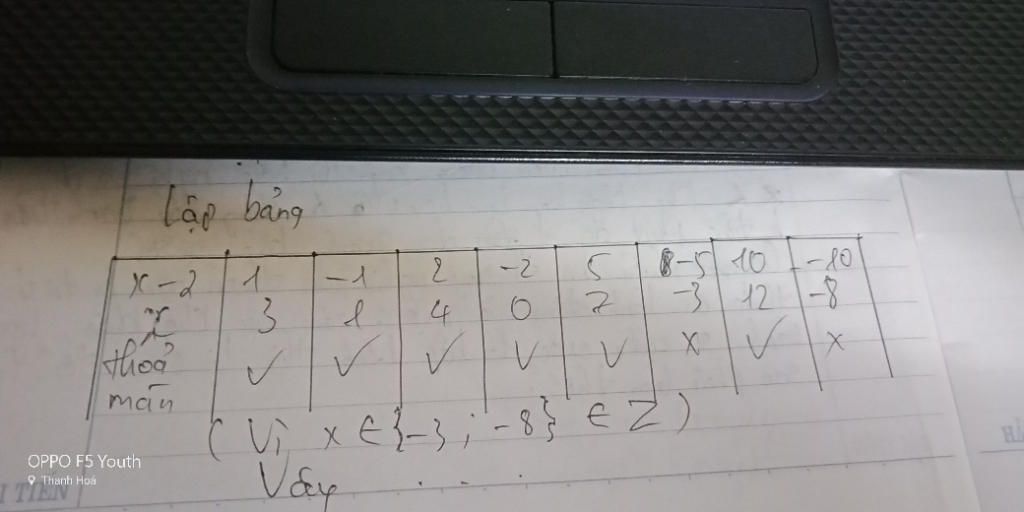 Lập bảng
x-2 1 -1 2 -2 5 -5 10 -10
x 3 1 4 0 7 -3 12 -8
thoả mãn ✓ ✓ ✓ ✓ ✓ x ✓ x
( Vì x ∈ {-3 ; -8} ∈ Z )
Vậy . . .
OPPO F5 Youth
Thanh Hoá
I TIEN